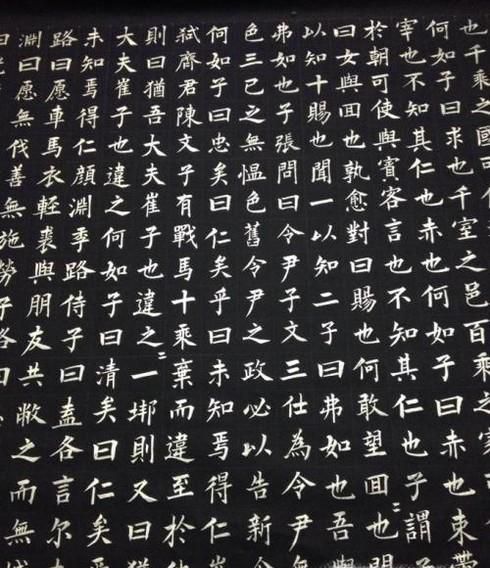 也千乘之國可
何如子曰求也千室之邑百乘之家
宰也不知其仁也赤也何如子曰赤也束帶
於朝可使與賓客言也不知其仁也子謂
曰女與囬也孰愈對曰賜也何敢望囬也〻聞
以知十賜也聞一以知二子曰弗如也吾與
弗如也子張問曰令尹子文三仕為令尹無
色三已之無慍色舊令尹之政必以告新令
何如子曰忠矣曰仁矣乎曰未知焉得仁
弒齊君陳文子有戰馬十乘棄而違至於
則曰猶吾大夫崔子也違之〻一邦則又曰猶
大夫崔子也違之何如子曰清矣曰仁矣
未知焉得仁顏淵季路侍子曰盍各言尔
路曰愿車馬衣輕裘與朋友共敝之而無
淵曰愿無伐善無施勞子路曰